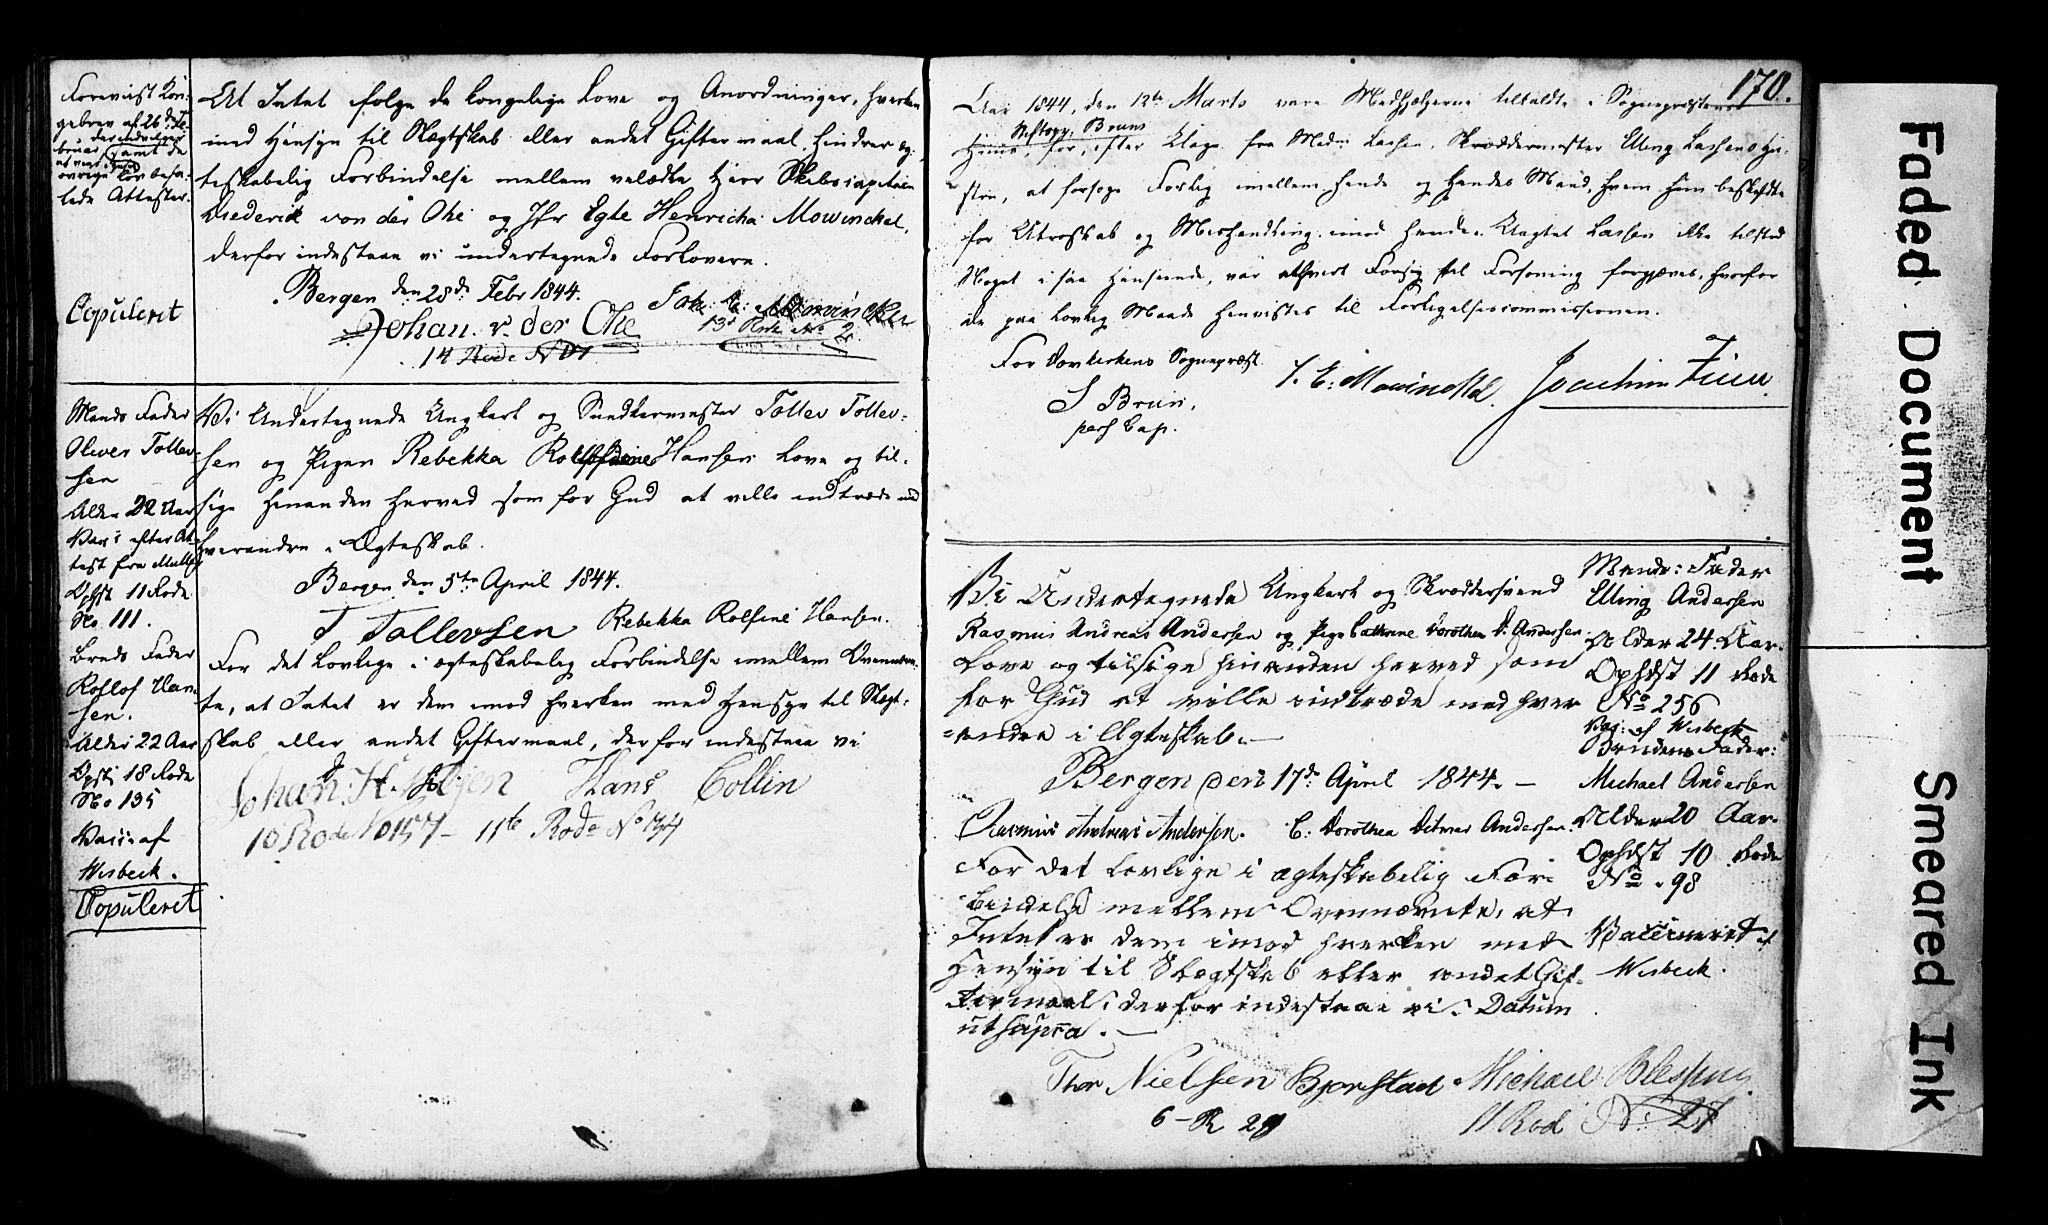 Foreviist Kon-
gebrev af 26 de Fe-
bruar samt de
øvrige lovbefa-
lede Attester.
Copuleret
At Intet følge de kongelige Love og Anordninger, hverken
med Hensyn til Slægtskab eller andet Giftermaal, hindrer æg-
teskabelig Forbindelse mellem velædle Herr Skibscapitain
Diederik von der Ohe og Jfr Egle Henricha Mowinckel,
derfor indestaae vi undertegnede Forlovere.
Bergen den 28de Febr 1844.
Johan v. der Ohe
14 Rode No
13de Rode No 2
Mands Fader
Oliver Tollev-
sen
Alder 22 Aar
Vacc: efter At-
test fra
Opst 11 Rode
No 111.
Bruds Fader
Rollof Han-
sen.
Alder 22 Aar
Opst: 18 Rode
No 135
Vacc: af
Wisbeck.
Copuleret
Vi Undertegnede Ungkarl og Snedkermester Tollev Tollev-
sen og Pigen Rebekka Hansen love og til-
sige hinanden herved som for Gud at ville indtræde med
hverandre i Ægteskab.
Bergen den 5te April 1844.
T Tollevsen Rebekka Rolfine Hansen.
For det Lovlige i ægteskabelig Forbindelse imellem Ovennævn-
te, at Intet er dem imod hverken med Hensyn til Slægt-
skab eller andet Giftermaal, derfor indestaae vi
Johan H. Hans Collin
10 Rode No 157 - 11te Rode No
170.
Aar 1844, den 12te Marts vare Medhjelperne tilkaldte i Sognepræstens
Resttogv: Bruns
Huus, for, efter Klage fra Mad: Lassen, Skræddermester Elling Lassens Hu-
stru, at forsøge Forlig imellem hende og hendes Mand, hvem hun beskyldte
for Utroskab og Mishandling imod hende. Uagtet Lassen ikke tilstod
Noget i saa Henseende, var ethvert Forsøg til Forsoning forgjæves, hvorfor
de paa lovlig Maade henvistes til Forligelsescommissionen.
For Domkirkens Sognepræst
J Brun,
pers Cap.
J. E. Mowinckel. Joachim Friis.
Vi Undertegnede Ungkarl og Skræddersvend
Rasmus Andreas Andersen og Pige Cathrine Dorothea D: Andersen
love og tilsige hinanden herved som
for Gud at ville indtræde med hver
=andre i Ægteskab. —
Bergen den 17de April 1844. —
Rasmus Andreas Andersen. C: Dorothea Ditmer Andersen.
For det Lovlige i ægteskabelig For-
bindelse mellem Ovennævnte, at
Intet er dem imod hverken med
Hensyn til Slægtskab eller andet Gif-
termaal; derfor indestaae vi. Datum
ut supra. —
Thor Nielsen Bjorstad Michael
6 - R 29
11 Rod No: 27
Mands: Fader
Elling Andersen
Alder 24 Aar.
Ophdst 11 Rode
No 256
Vac: af Wisbeck
Brudens Fader:
Michael Andersen
Alder 20 Aar
Ophdst 10 Rode
No 98
Vaccineret af
Wisbeck.
Faded Document
Smeared Ink